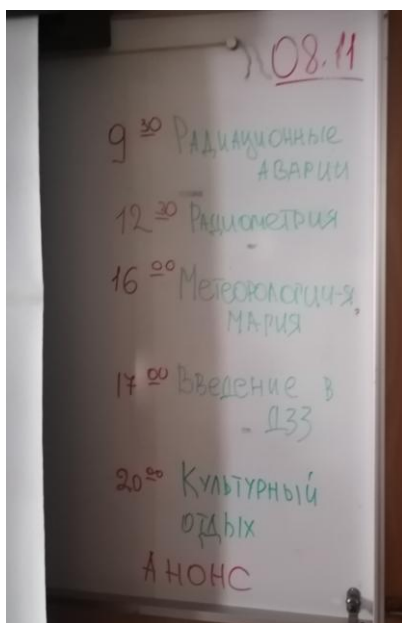 08.11
9 30 Радиационные
аварии
12 30 Радиометрия
16 00 Метеорологци-я,
Мария
17 00 Введение в
ДЗЗ
20 00 Культурный
отдых
Анонс